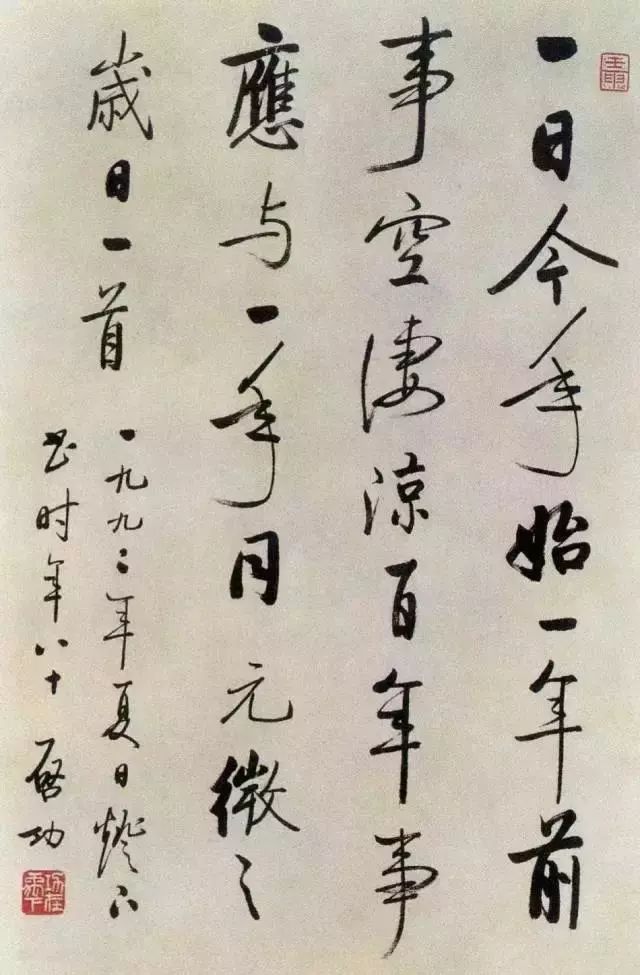 一日今年始一年前
事空淒涼百年事
應与一年同元微之
歳日一首
一九九二年夏日燈下
书时年八十啓功